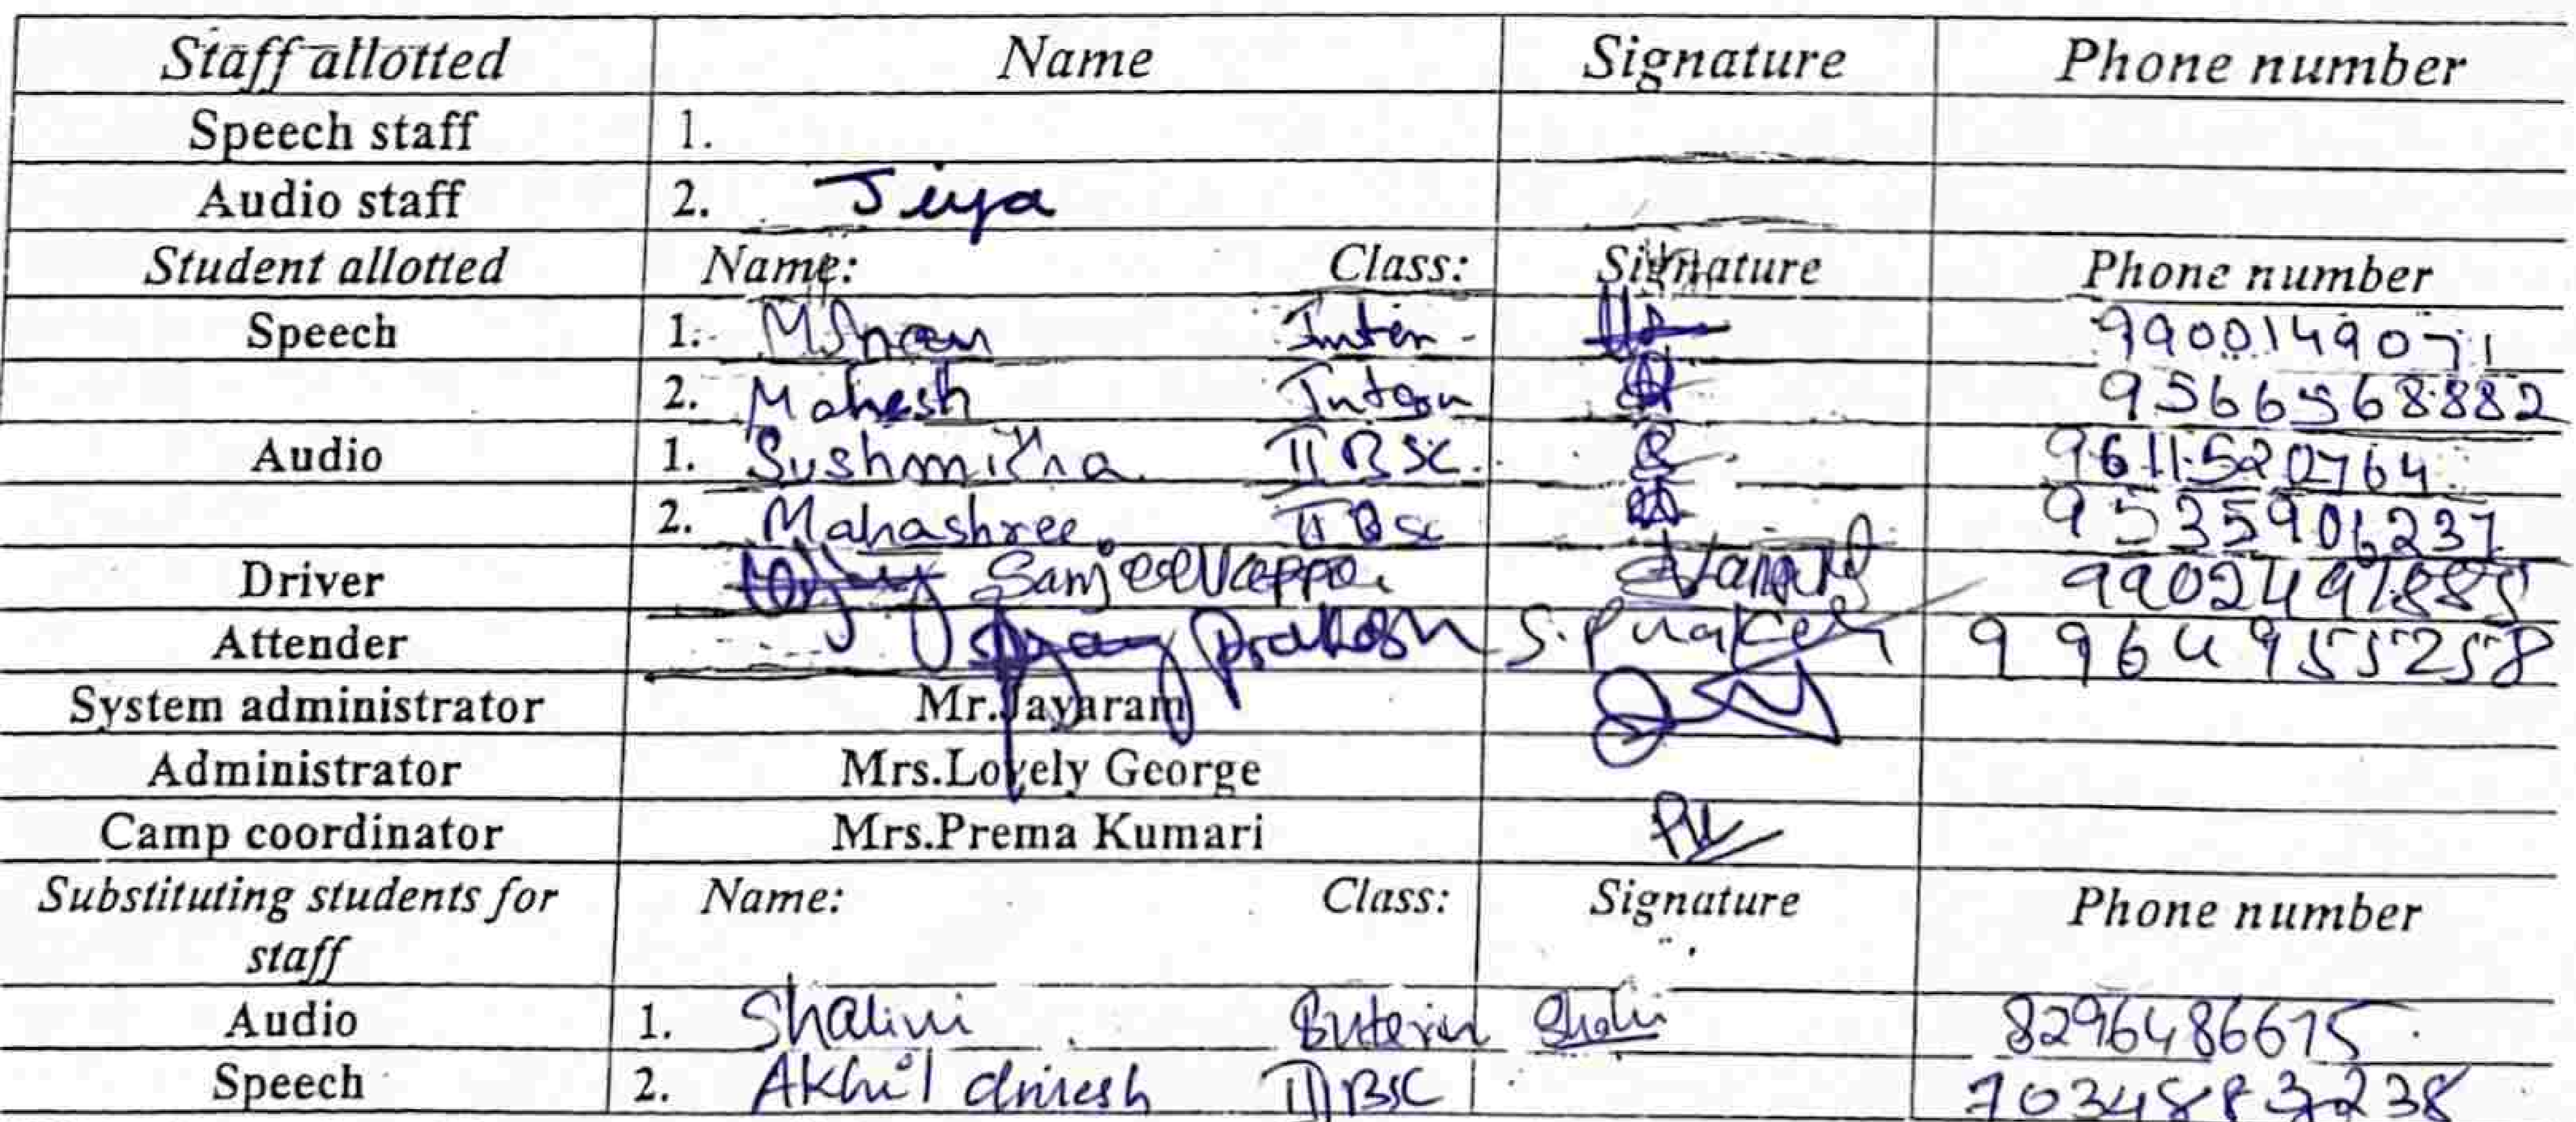 Staff allotted Name Signature Phone number
Speech staff 1.
Audio staff 2. Jiya
Student allotted Name: Class: Signature Phone number
Speech 1. Intern 9900149071
2. Mahesh Intern 9566568882
Audio 1. Sushmitha II BSC 9611520764
2. Mahashree II BSc 9535906237
Driver Sanjeevappa
Attender Prakash S. Prakash 9964955258
System administrator Mr.Jayaram
Administrator Mrs.Lovely George
Camp coordinator Mrs.Prema Kumari PK
Substituting students for Name: Class: Signature Phone number
staff
Audio 1. Shalini Intern Shalini 8296486675
Speech 2. Akhil dinesh III BSC